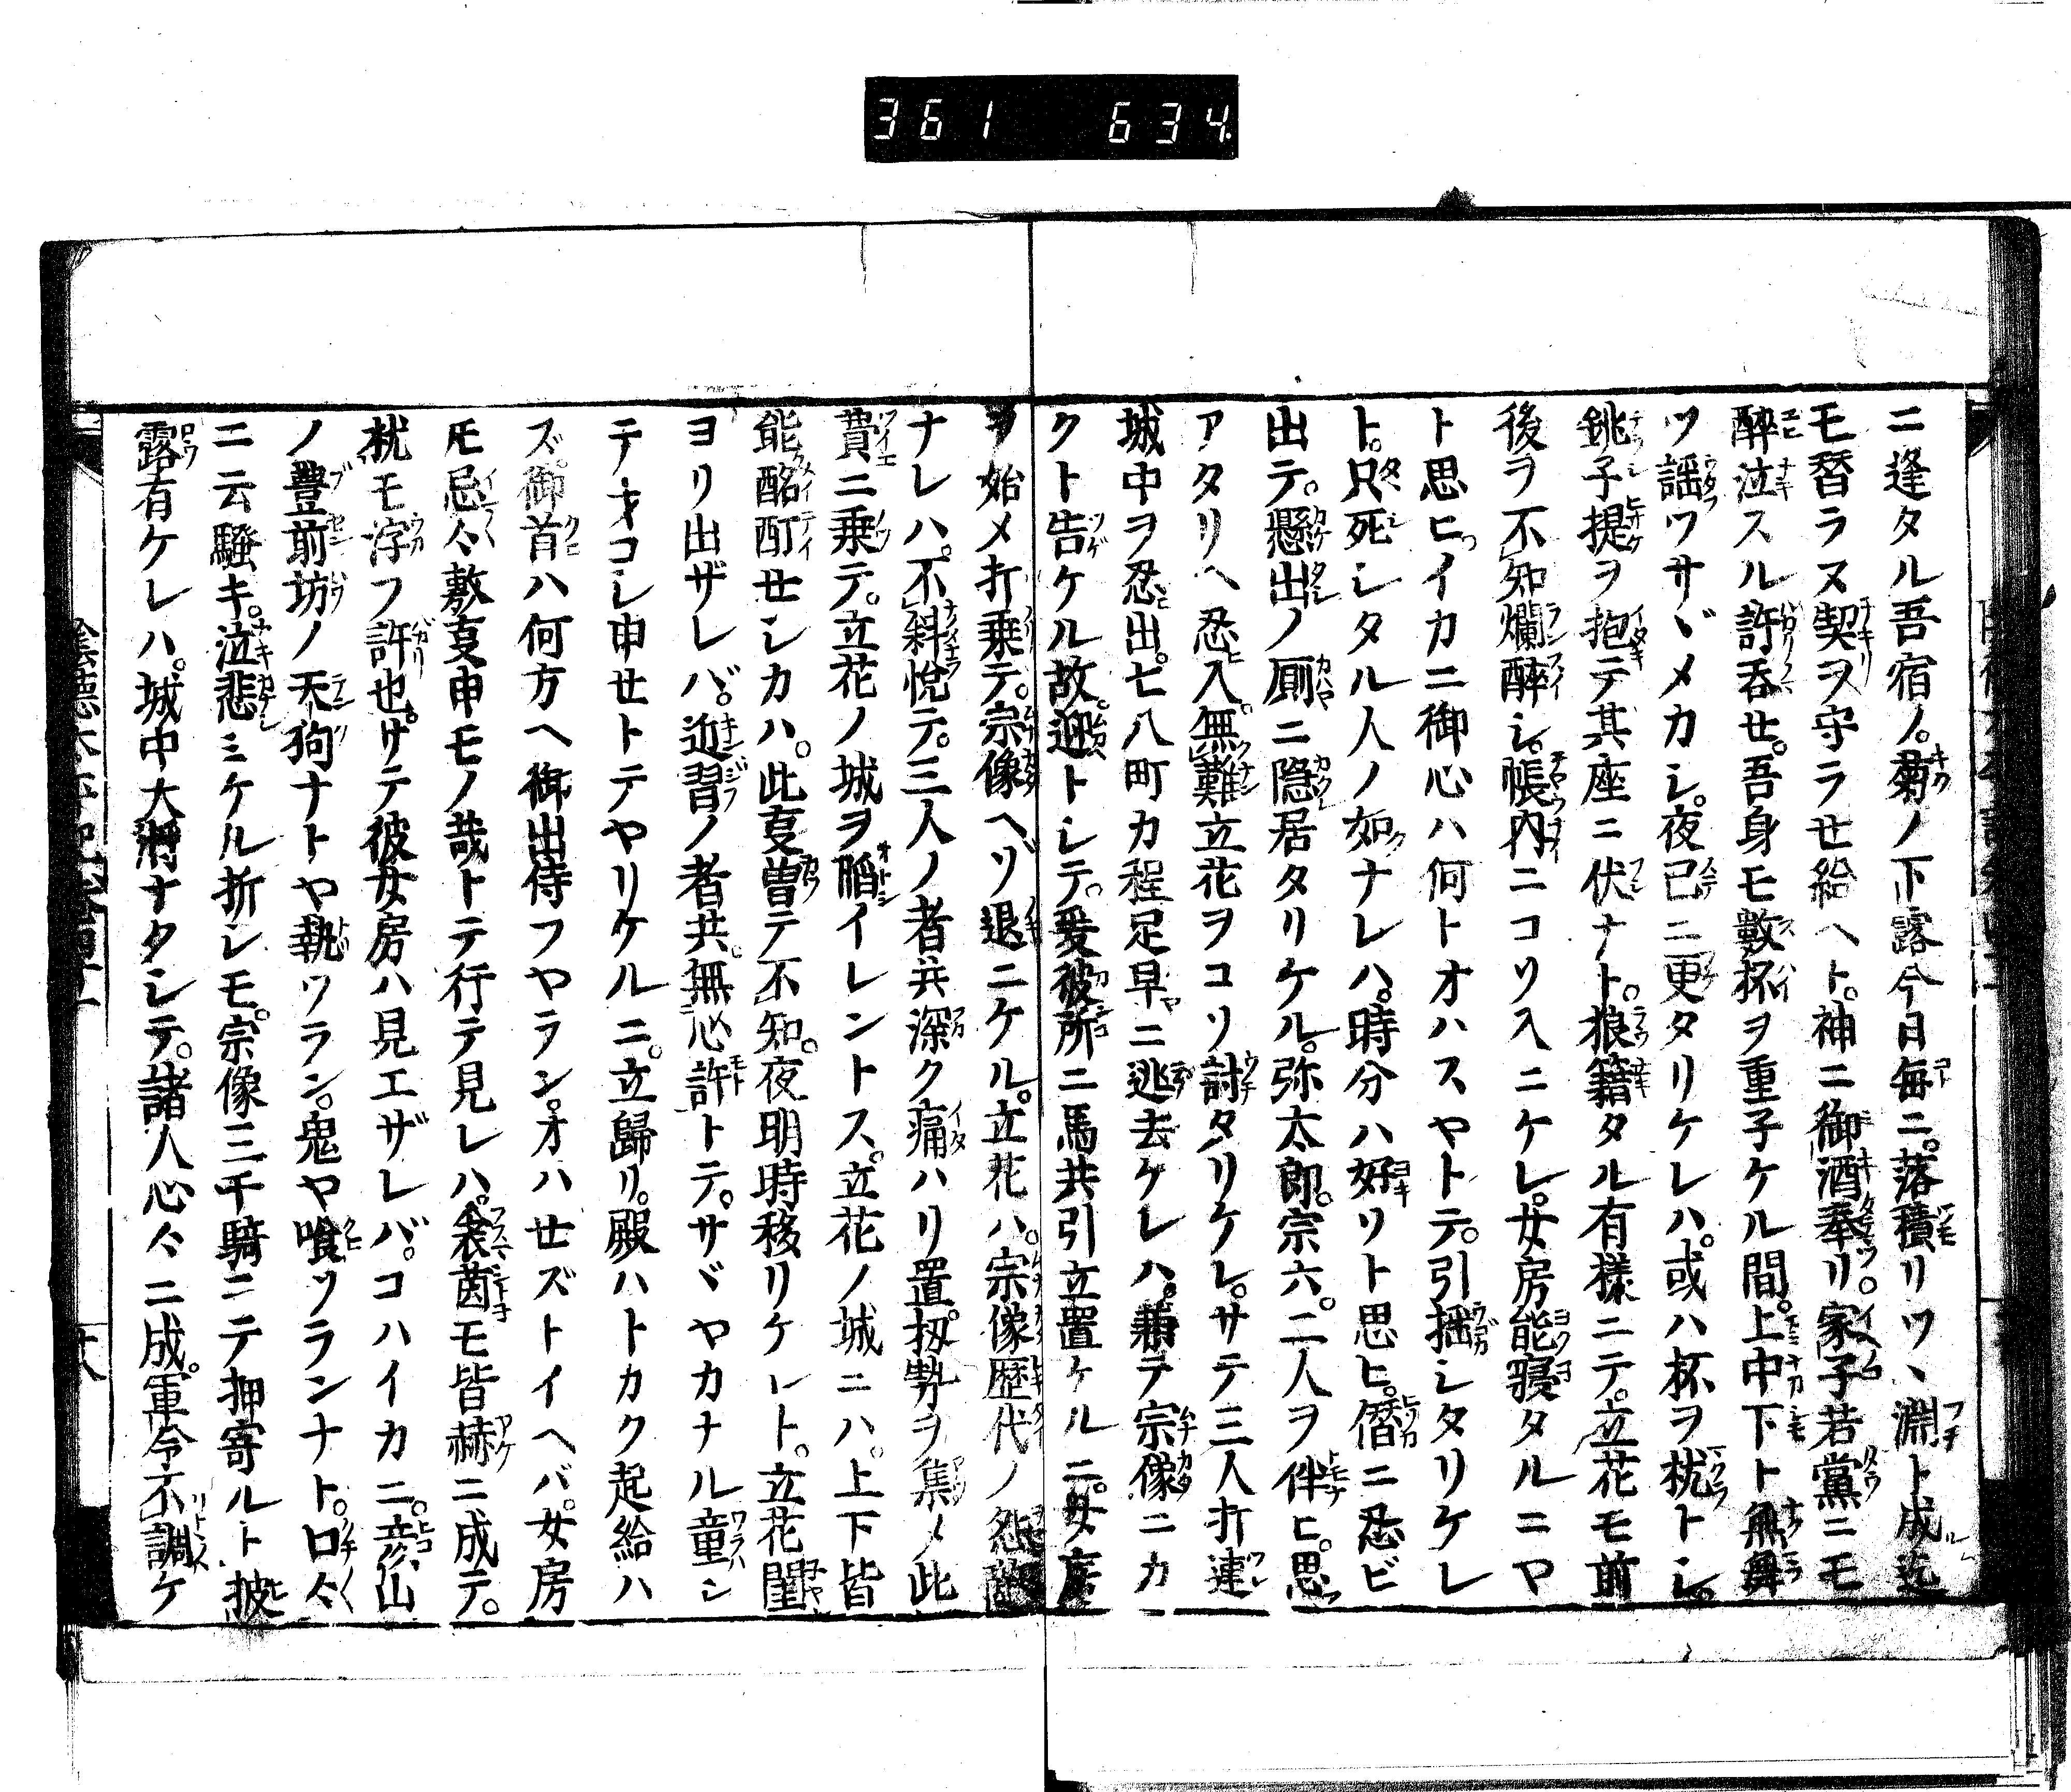 361 634
ニ逢タル吾宿ノ。菊ノ下露今日毎ニ。落積リツヽ淵ト成迄
モ替ラス契ヲ守ラセ給ヘト。神ニ御酒奉リ。家子若黨ニモ
醉泣スル許呑セ。吾身モ數杯ヲ重子ケル間。上中下ト無舞
ツ謡ツサヾメカシ。夜已ニ更タリケレハ。或ハ杯ヲ枕トシ。
銚子提ヲ抱テ其座ニ伏ナト。狼籍タル有樣ニテ。立花モ前
後ヲ不知爛醉シ。帳内ニコソ入ニケレ。女房能寢タルニヤ
ト思ヒ。イカニ御心ハ何トオハスヤトテ。引搖シタリケレ
ト。只死シタル人ノ如ナレハ。時分ハ好ソト思ヒ。潛ニ忍ビ
出テ。懸出ノ厠ニ隱居タリケル。弥太郎。宗六。二人ヲ伴ヒ。思フ
アタリヘ忍入。無難立花ヲコソ討タリケレ。サテ三人打連
城中ヲ忍出。七八町カ程足早ニ逃去ケレハ。兼テ宗像ニカ
クト告ケル故。迎トシテ。爰彼所ニ馬共引立置ケルニ。女房
ヲ始メ打乗テ。宗像ヘゾ退ニケル。立花ハ。宗像歴代ノ怨敵
ナレハ。不斜悦テ。三人ノ者共深ク痛ハリ置。扨勢ヲ集メ此
費ニ乗テ。立花ノ城ヲ䧟イレントス。立花ノ城ニハ。上下皆
能酩酊セシカハ。此叓曽テ不知。夜明時移リケレト。立花閨
ヨリ出ザレバ。近習ノ者共。無心許トテ。サヾヤカナル童シ
テオコシ申セトテヤリケルニ。立歸リ。殿ハトカク起給ハ
ズ。御首ハ何方ヘ御出侍フヤラン。オハセズトイヘバ。女房
モ忌々敷叓申モノ哉トテ行テ見レハ。衾茵モ皆赫ニ成テ。
枕モ浮フ許也。サテ彼女房ハ見エザレバ。コハイカニ。彦山
ノ豊前坊ノ天狗ナトヤ執ツラン。鬼ヤ喰ツランナト。口々
ニ云騒キ。泣悲ミケル折シモ。宗像三千騎ニテ押寄ルト披
露有ケレハ。城中大將ナタシテ。諸人心々ニ成。軍令不調ケ
陰德太平記卷
十八